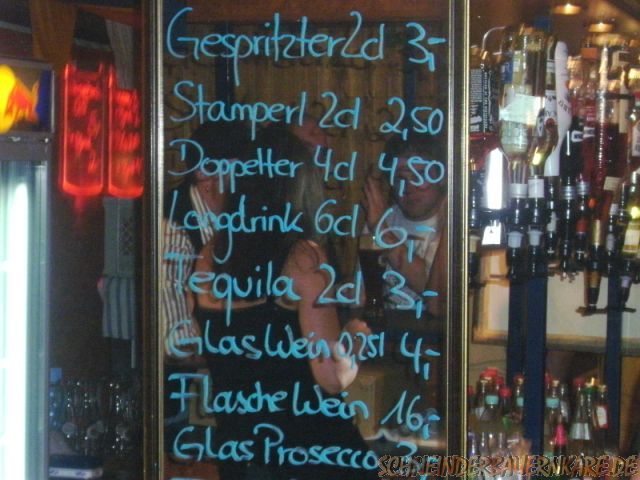 Gespritzter 2cl 3,-
Stamperl 2cl 2,50
Doppelter 4cl 4,50
Longdrink 6cl 6,-
Tequila 2cl 3,-
Glas Wein 0,25l 4,-
Flasche Wein 16,-
Glas Prosecco
SCHNEIDERBAUERNKARE.DE